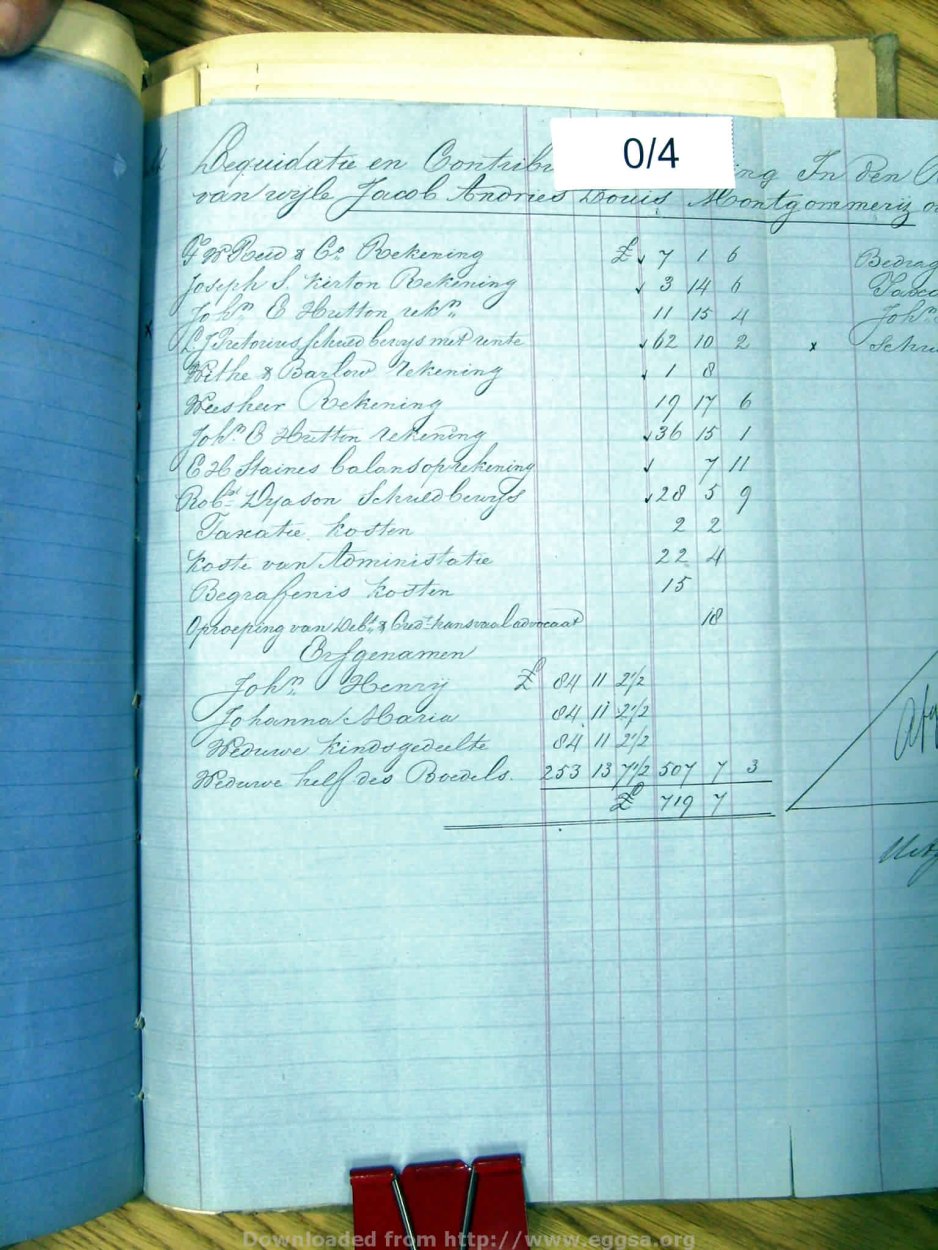 0/4
Liquidatie en Contrib ing In den
van wyle Jacob Andries Louis Montgommerij
Reid & Co. Rekening £ 7 1 6
Joseph S. Kirton Rekening 3 14 6
John E Hutton rekn 11 15 4
Pretorius schuld bewys met rente 62 10 2
Withe & Barlow rekening 1 8
Weesheer Rekening 19 17 6
John E Hutton rekening 36 15 1
E H Staines balans op rekening 7 11
Robert Dyason Schuld bewys 28 5 9
Taxatie kosten 2 2
Koste van Administatie 22 4
Begrafenis kosten 15
Oproeping van Debt & Credt Transvaal advocaat 18
Erfgenamen
John Henry £ 84 11 2 1/2
Johanna Maria 84 11 2 1/2
Weduwe kindsgedeelte 84 11 2 1/2
Weduwe helf des Boedels 253 13 7 1/2 507 7 3
£ 719 7
Bedrag
Taxa
John
Schu
Downloaded from http://www.eggsa.org